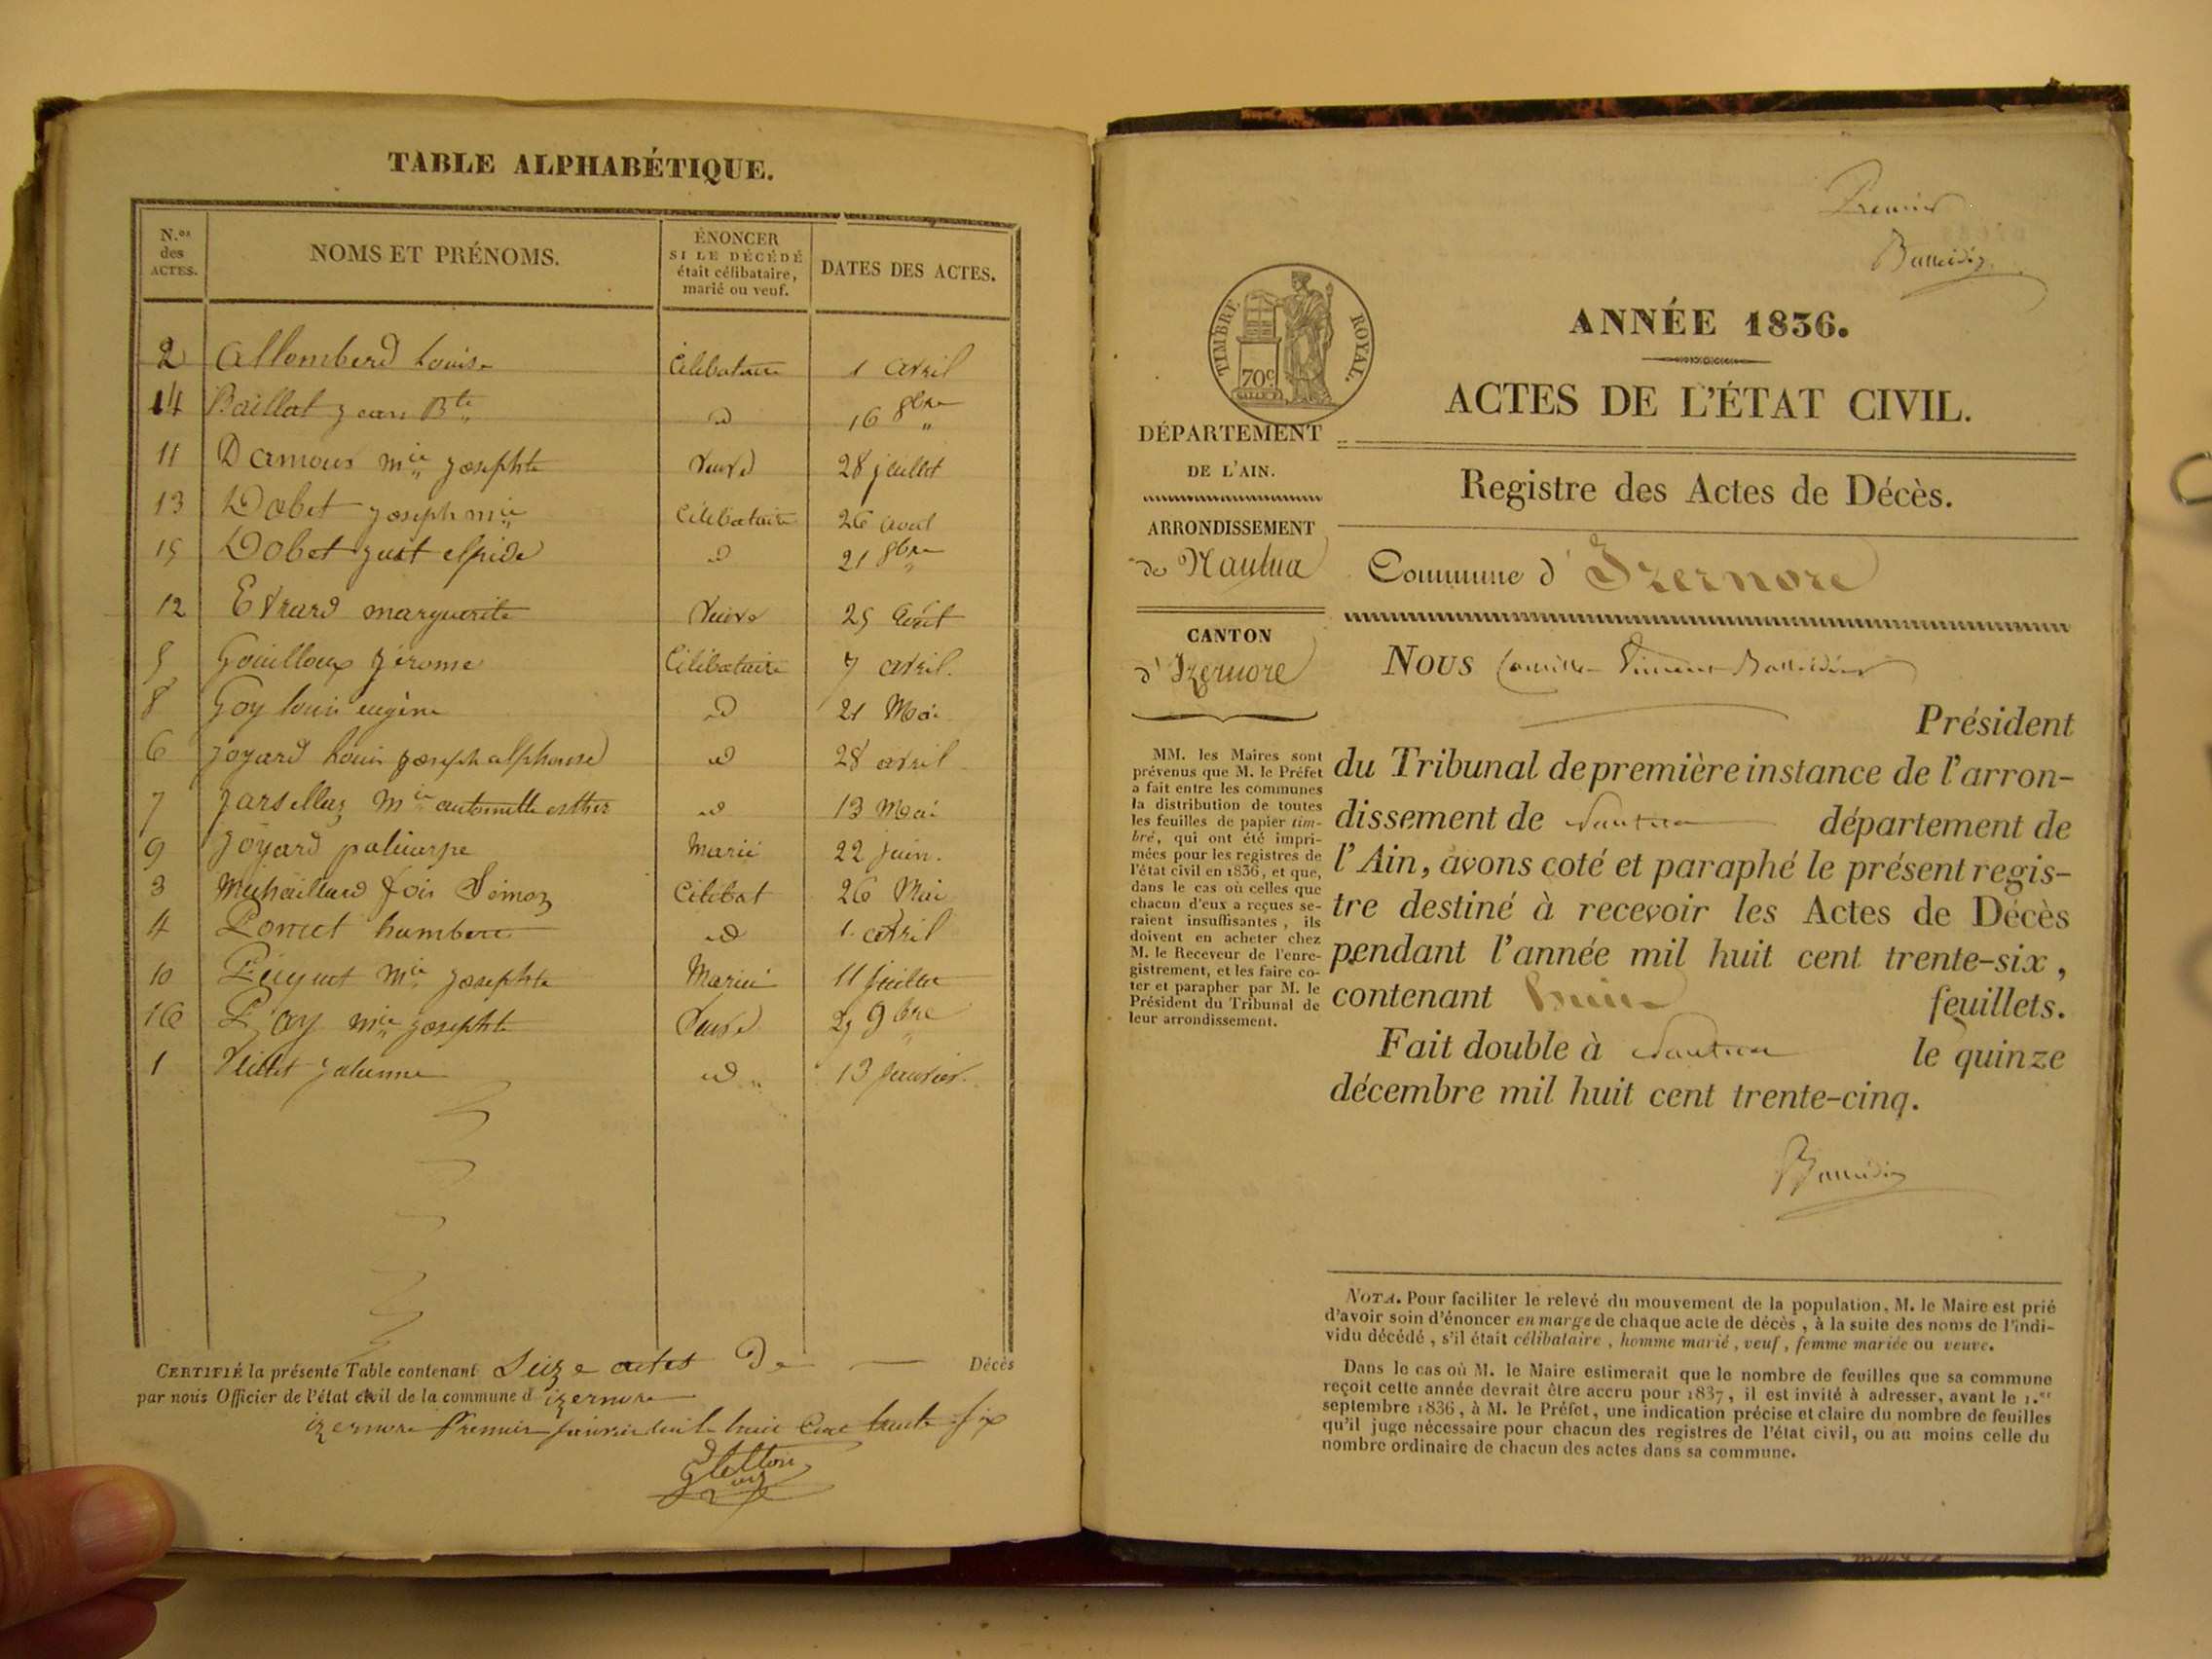 TABLE ALPHABÉTIQUE.
N.os des ACTES.
NOMS ET PRÉNOMS.
ÉNONCER
SI LE DÉCÉDÉ
était célibataire,
marié ou veuf.
DATES DES ACTES.
2 Allomberd Louise Célibataire 1 avril
14 Baillat jean Bte d 16 8bre
11 Damour mie josephte veuve 28 juillet
13 Dobet joseph mie Célibataire 26 aout
15 Dobet just elpide d 21 8bre
12 Evrard marguerite veuve 25 août
5 Gouilloux jérome Célibataire 7 avril.
8 Goy louis eugène d 21 Mai
6 joyard Louis joseph alphonse d 28 avril
7 jarselluz mie antoinette esther d 13 Mai
9 joyard policarpe Marié 22 juin.
3 fois Célibat 26 Mai
4 humbert d 1. avril
10 mie josephte Mariée 11 juillet
16 mie josephte veuve 9bre
1 d 13 janvier.
CERTIFIÉ la présente Table contenant Seize actes De — Décès
par nous Officier de l'état civil de la commune d'izernore
izernore Premier janvier mil huit Cent trente six
Premier
ANNÉE 1836.
ACTES DE L'ÉTAT CIVIL.
TIMBRE ROYAL.
70c
DÉPARTEMENT
DE L'AIN.
Registre des Actes de Décès.
ARRONDISSEMENT
de Nantua
Commune d'Izernore
CANTON
d'Izernore
Nous Camille Vincent
Président
du Tribunal de première instance de l'arron-
dissement de Nantua département de
l'Ain, avons coté et paraphé le présent regis-
tre destiné à recevoir les Actes de Décès
pendant l'année mil huit cent trente-six,
contenant huit feuillets.
Fait double à Nantua le quinze
décembre mil huit cent trente-cinq.
MM. les Maires sont
prévenus que M. le Préfet
a fait entre les communes
la distribution de toutes
les feuilles de papier tim-
bré, qui ont été impri-
mées pour les registres de
l'état civil en 1836, et que,
dans le cas où celles que
chacun d'eux a reçues se-
raient insuffisantes, ils
doivent en acheter chez
M. le Receveur de l'enre-
gistrement, et les faire co-
ter et parapher par M. le
Président du Tribunal de
leur arrondissement.
NOTA. Pour faciliter le relevé du mouvement de la population, M. le Maire est prié
d'avoir soin d'énoncer en marge de chaque acte de décès, à la suite des noms de l'indi-
vidu décédé, s'il était célibataire, homme marié, veuf, femme mariée ou veuve.
Dans le cas où M. le Maire estimerait que le nombre de feuilles que sa commune
reçoit cette année devrait être accru pour 1837, il est invité à adresser, avant le 1.er
septembre 1836, à M. le Préfet, une indication précise et claire du nombre de feuilles
qu'il juge nécessaire pour chacun des registres de l'état civil, ou au moins celle du
nombre ordinaire de chacun des actes dans sa commune.